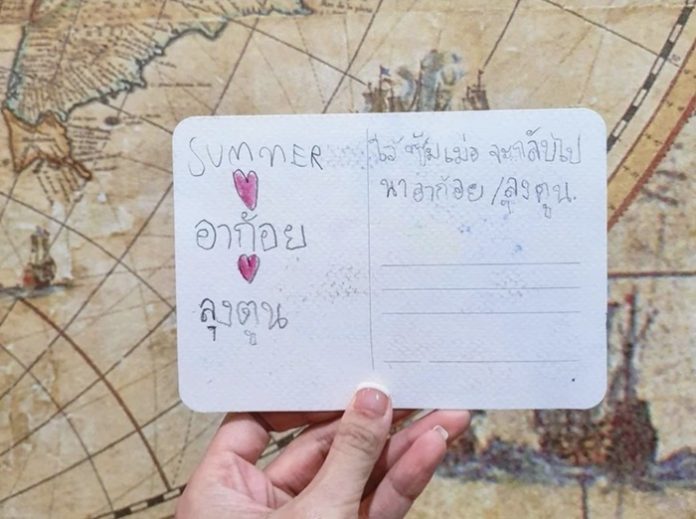 SUMMER
อาก้อย
ลุงตูน
ไว้ ซัมเมอ จะกลับไป
นาอาก้อย /ลุงตูน.